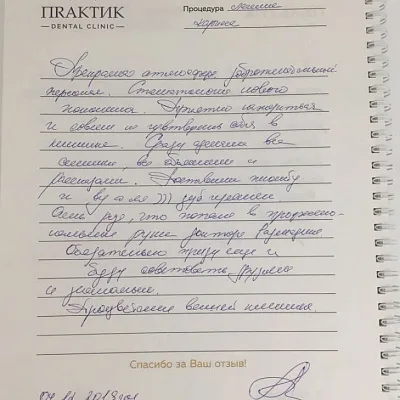 ПRAKТИК
— DENTAL CLINIC —
Процедура лечение
кариеса
Прекрасная атмосфера, доброжелательный
персонал. Стоматология нового
поколения. Приятно находиться
и совсем не чувствуешь себя в
клинике. Сразу сделали все
снимки, все объяснили и
рассказали. Поставили пломбу
и ву а ля ))) зуб
Очень рада, что попала в профессио-
нальные руки доктора
Обязательно приду еще и
буду советовать друзьям
и знакомым.
Процветания вашей клинике.
Спасибо за Ваш отзыв!